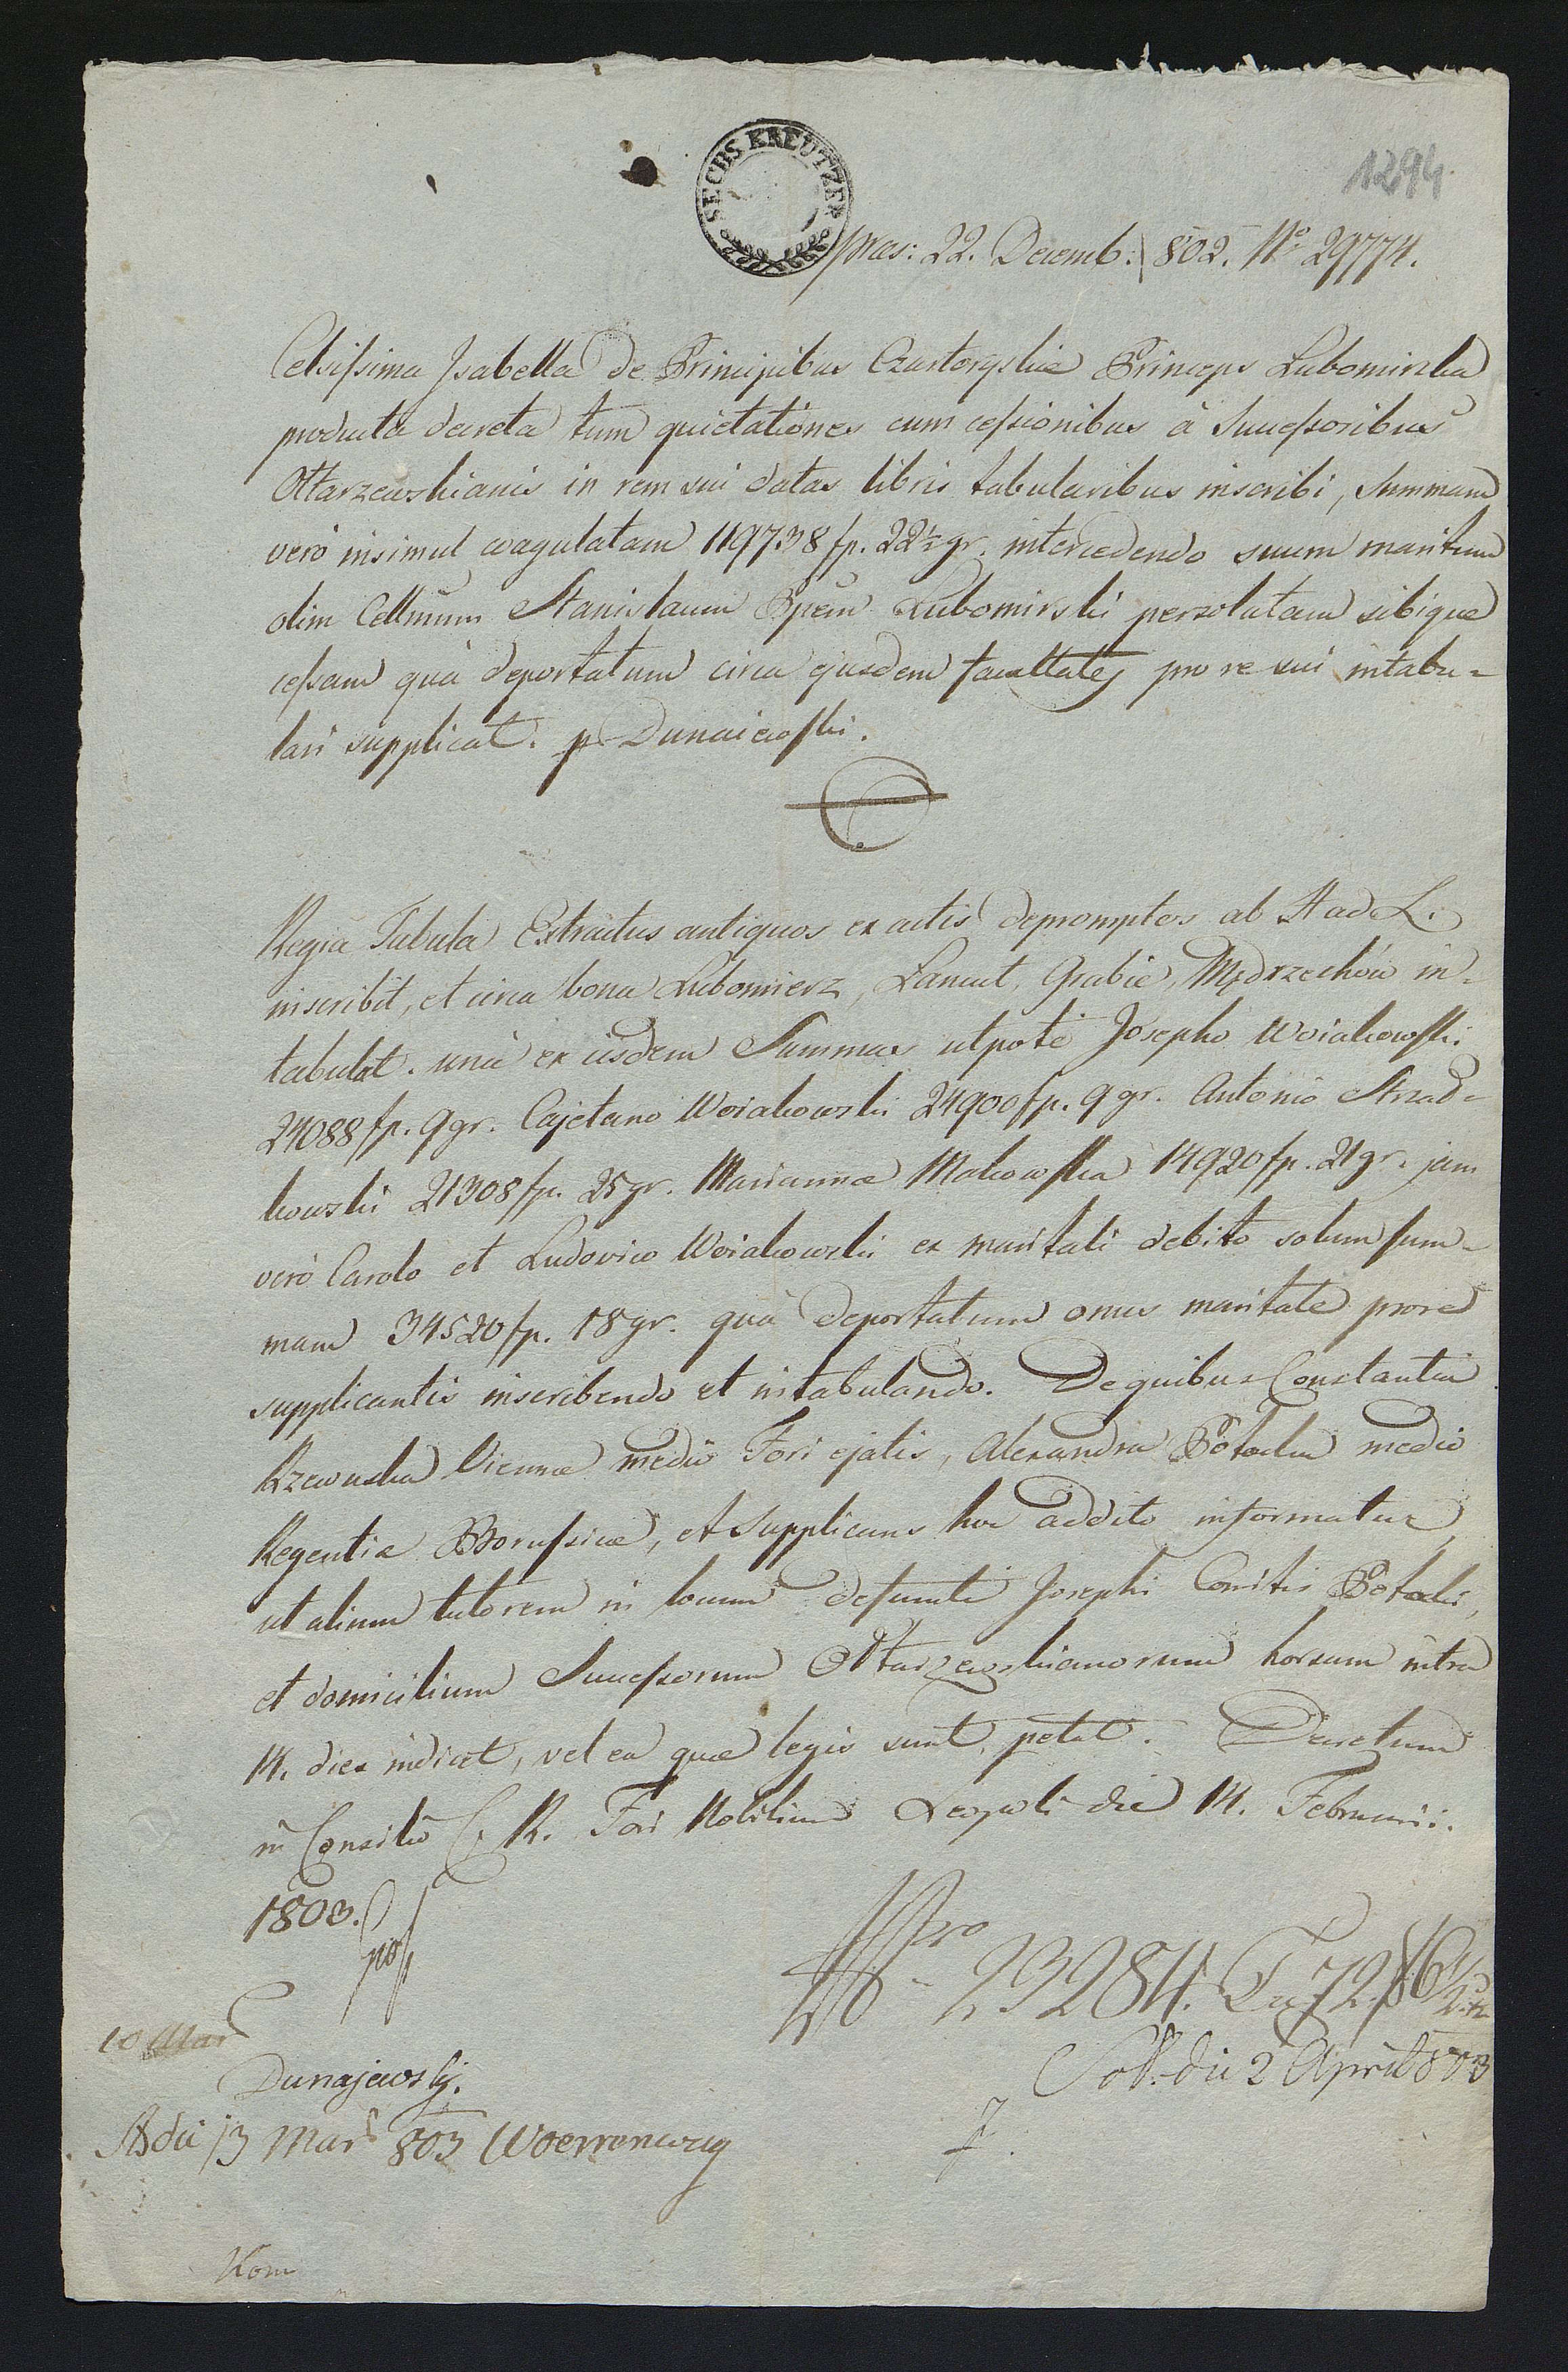 SECHS KREUTZER
1294
præs: 22. Decemb: 802. No 29774.
Celsissima Isabella de Principibus Czartoryskie Princeps Lubomirska
producta decreta tum quietationes cum cessionibus à Successoribus
Ottarzewskianis in rem sui datas libris tabularibus inscribi, Summam
verò insimul coagulatam 119738 fp. 22½ gr. intercedendo suum maritum
olim Cellmum Stanislaum Ppem Lubomirski persolutam sibique
cessam quà deportatum circa ejusdem facultates pro re sui intabu-
lari supplicat. p Dunaiewski.
Regia Tabula Extractus antiquos ex actis depromptos ab A ad L.
inscribit, et circa bona Lubomierz, Lancut, Grabie, Mędrzechów in-
tabulat. unà ex iisdem Summas utpote Josepho Woiakowski
24088 fp. 9 gr. Cajetano Woiakowski 24900 fp. 9 gr. Antonio Strzad-
kowski 21308 fp. 25 gr. Mariannæ Makowska 14920 fp. 21 gr. jam
verò Carolo et Ludovico Woiakowski ex maritali debito solum sum-
mam 34520 fp. 18 gr. quà deportatum onus maritale pro re
supplicantis inscribendo et intabulando. De quibus Constantia
Rzewuska Viennæ medio Fori ejatis, Alexandra Potocka medio
Regentiæ Borussicæ, et Supplicans hoc addito informatur,
ut alium tutorem in locum defuncti Josephi Comitis Potocki,
et domicilium Successorum Ottarzewskianorum horsum intra
14. dies indicet, vel ea quæ legis sunt, petat. Decretum
in Consilio C. R. Fori Nobilium Leopoli die 14. Februarii.
1803.
Npro 23284.
10 Mar
Dunajewskj.
Sol. die 2 April 803
A die 13 Mar 803
Kom